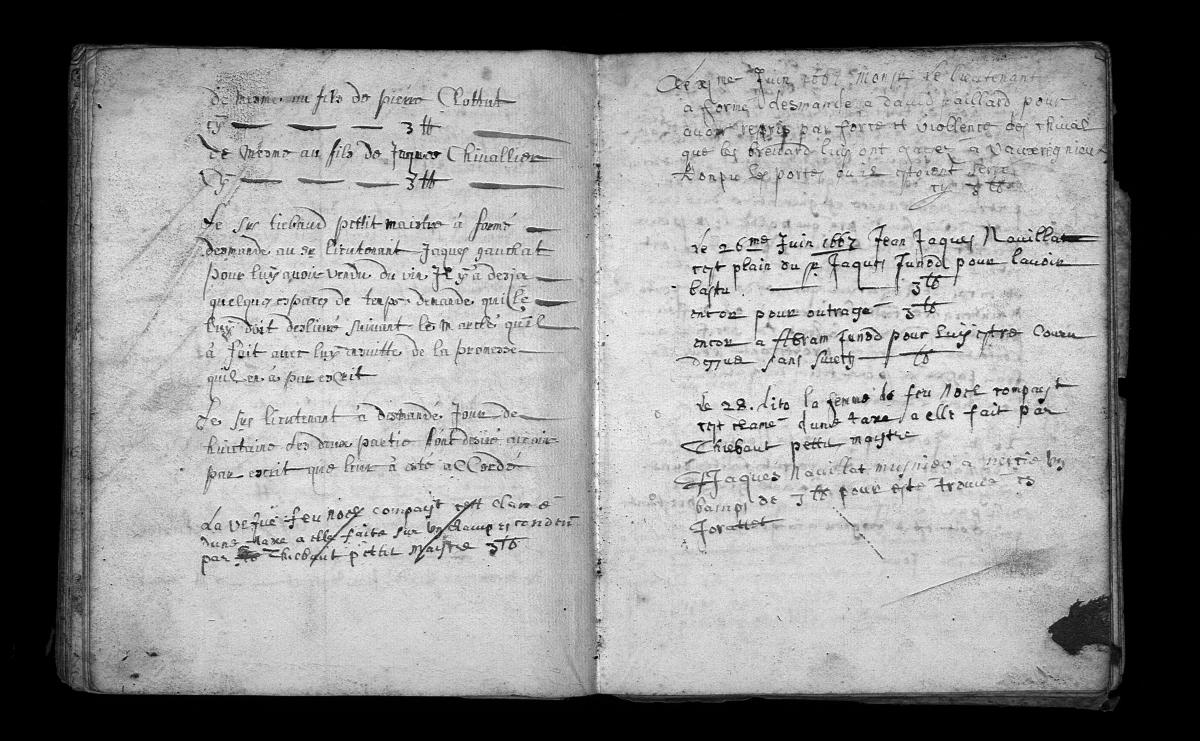 de mesme au fils de pierre Clottut
cy 3 ℔
de mesme au fils de Jaques Chivallier
Cy 3 ℔
Le sus tiebaud pettit maistre à formé
desmande au sr lieutenant Jaques gauchat
pour luy avoir vendu du vin Il y a desja
quelques espaces de temps demande quil le
luy doit deslivré suivant le marché qu'il
à fait avec luy ensuitte de la promesse
quil en à par escrit
Le sus lieutenant à desmandé Jour de
huictaine les deux partie sont
par escrit que leur à esté accordé
La vefue feu noel compayt cest clamé
dune taxe a elle faite sur un champ
par Thiebaut pettit maistre 3 ℔
Le xj me Juin 1667 monsr le lieutenant
a formé desmande a david paillard pour
avoir repris par force et viollence des chival
que les brevard luy ont gagez a vauxregnieu
Ronpu les portes ou il estoient serre
cy 3 ℔
le 26 me Juin 1667 Jean Jaques Navillat
cest plain du sr Jaques Junod pour lavoir
bastu 3 ℔
encor pour outrage 3 ℔
encor a Abram Junod pour luy estre couru
dessus sans suieth ℔
le 28 dito la femme de feu Noel compayt
cest clamé dune taxe a elle fait par
Thiebaut pettit maistre
Jaques Navillat musnier a
de 3 ℔ pour este trouve
Jorattet